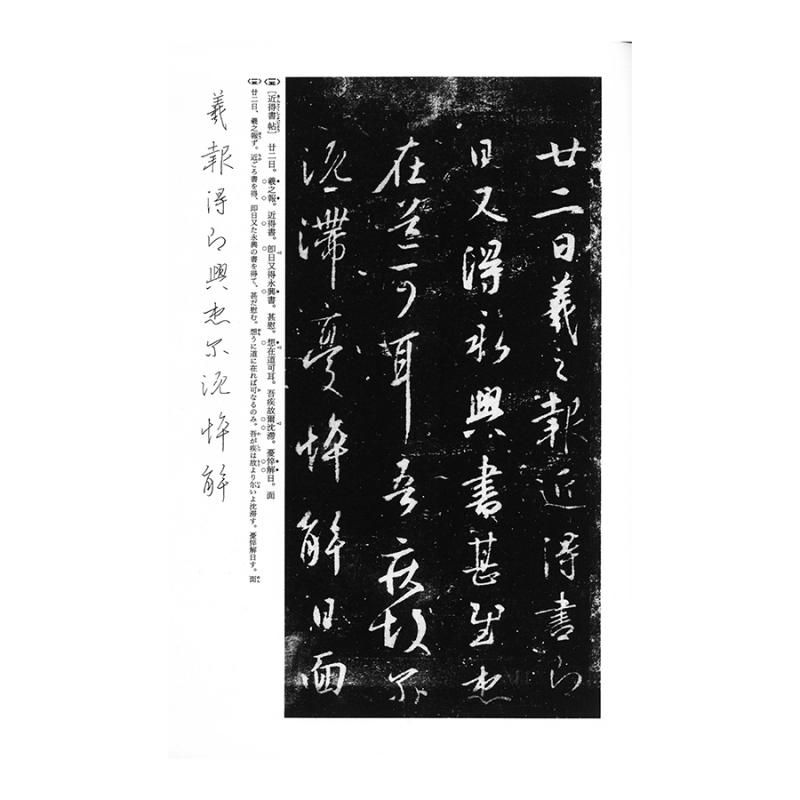 廿二日羲之報近得書即
日又得永興書甚慰想
在道可耳吾疾故爾
沈滯憂悴解日面
［近得書帖］　廿二日。羲之報。近得書。即日又得永興書。甚慰。想在道可耳。吾疾故爾沈滯。憂悴解日。面
廿二日、羲之報ず。近ごろ書を得、即日又た永興の書を得て、甚だ慰む。想うに道に在れば可なるのみ。吾が疾は故より尓いよ沈滯す。憂悴解日す。面
羲報得即興想尓沈悴解